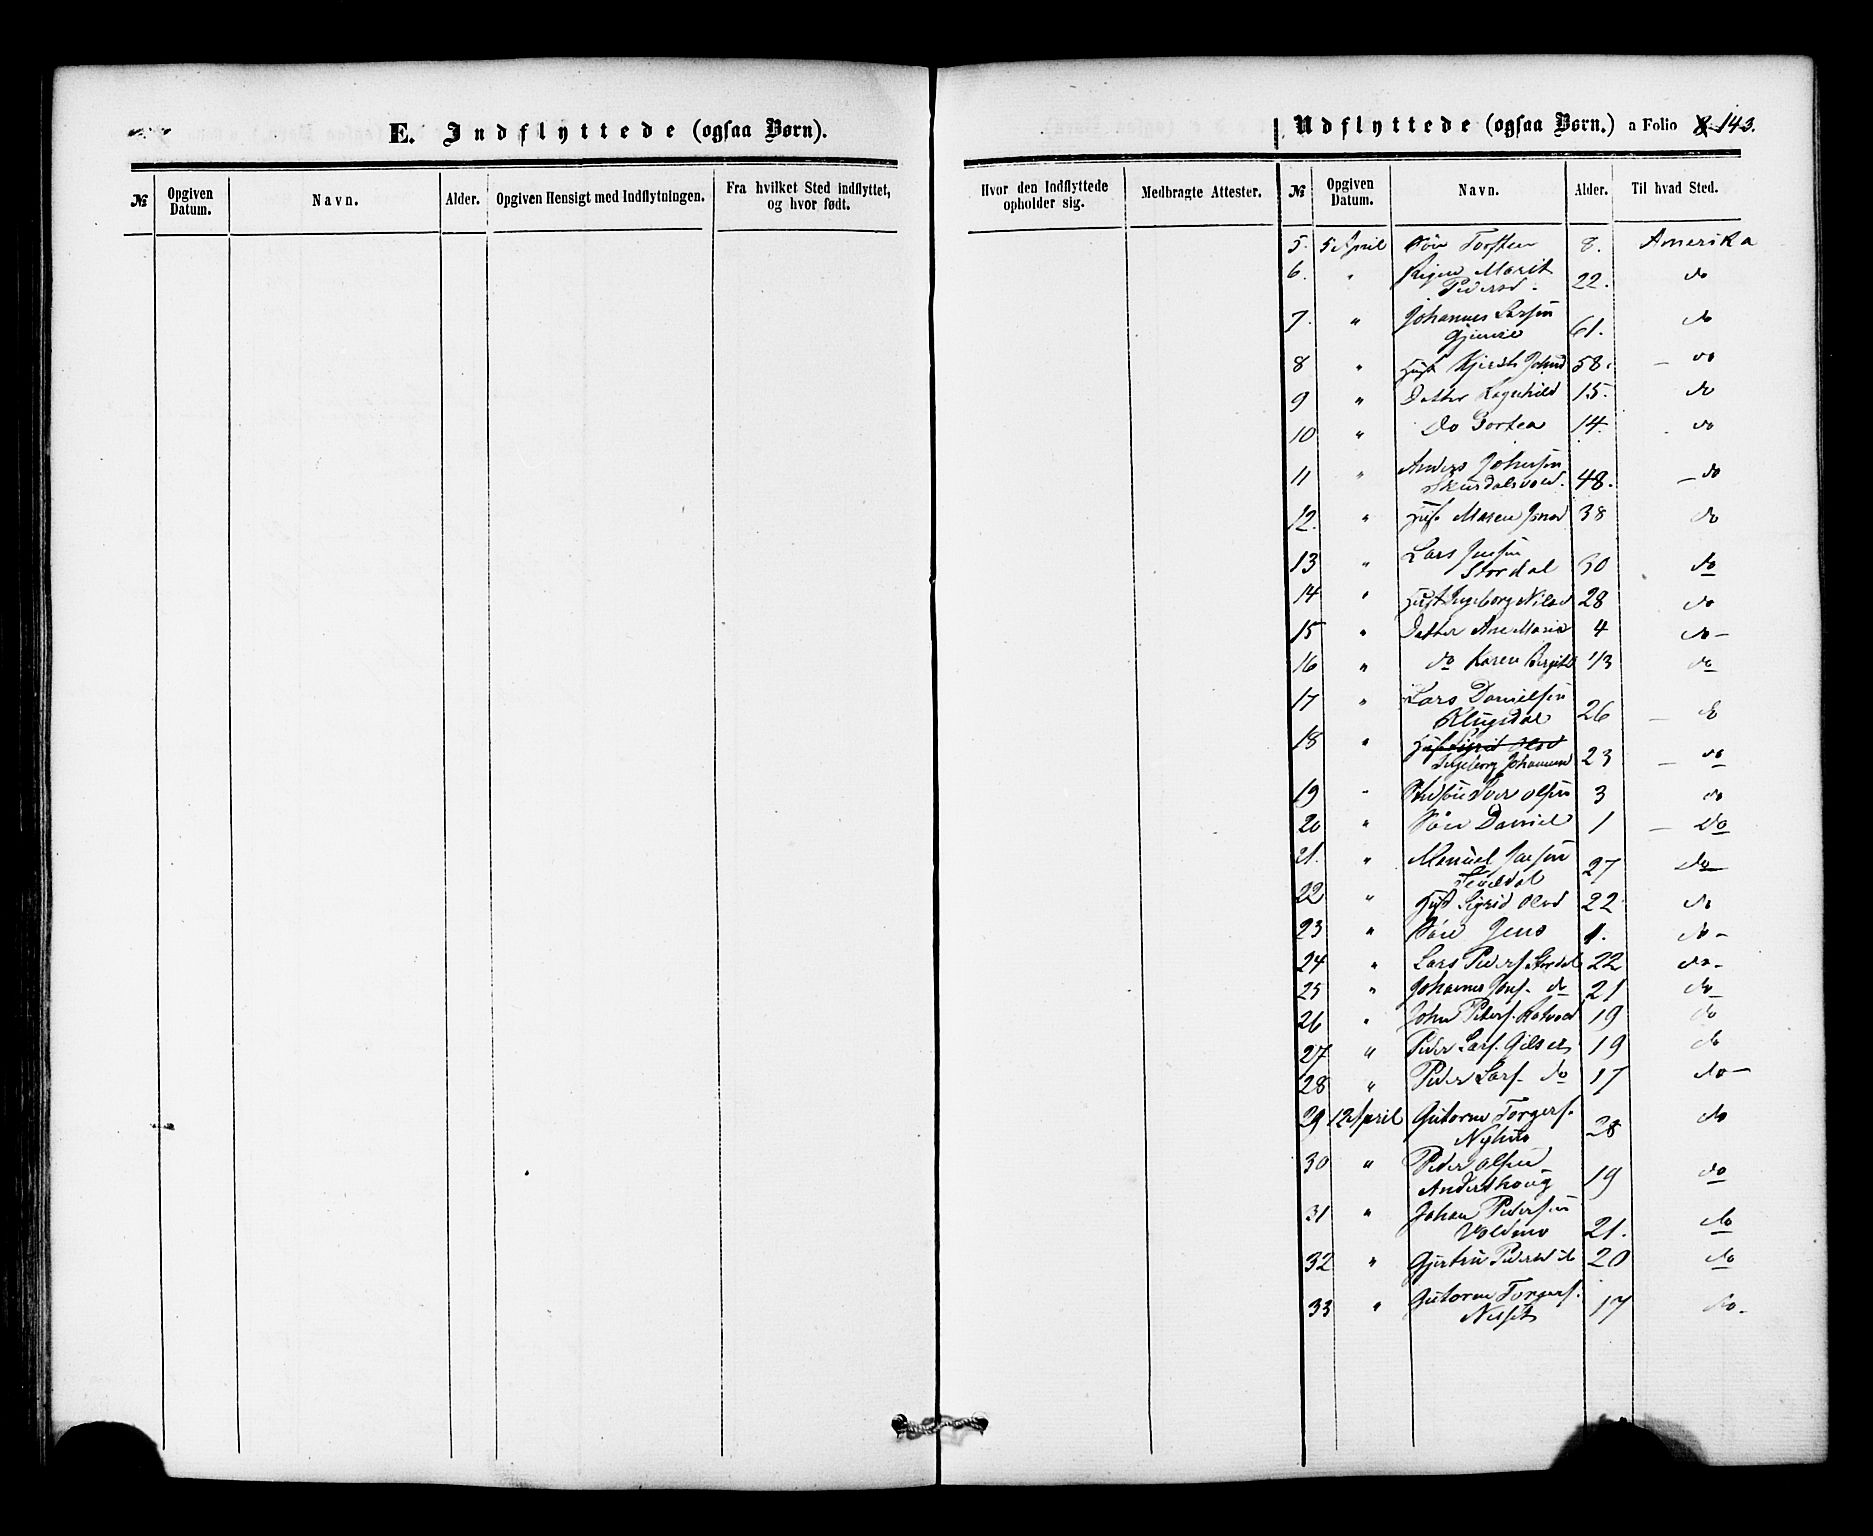 E. Indflyttede (ogsaa Børn).
Udflyttede (ogsaa Børn.) a Folio 143.
№ Opgiven Datum. Navn. Alder. Opgiven Hensigt med Indflytningen. Fra hvilket Sted indflyttet, og hvor født. Hvor den Indflyttede opholder sig. Medbragte Attester. № Opgiven Datum. Navn. Alder. Til hvad Sted.
5. 5 April Søn Torsten 8. Amerika
6. " Pigen Marit
Pedersd. 22. do
7. " Johannes Larsen
61. do
8 " Hust Kjersti Johnsd 58. do
9 " Datter 15. do
10 " Do 14. do
11 " Anders Johnsen
48. do
12. " Hust. Maren 38 do
13 " Lars Jensen
Stordal 30 do
14 " Hust Ingeborg Nilsd 28 do
15 " Datter Ane Maria 4 do
16 " do Karen 1/3 do
17 " Lars Danielsen
26 do
18 " Hust Sigrid Olsd
Ingeborg 23 do
19 " Iver Olsen 3 do
20 " Søn Daniel 1 Do
21. " Manuel Jensen
27 do
22 " Hust Sigrid Olsd 22 do
23 " Søn Jens 1. do
24 " Lars Peders. Stordal 22 do
25 " Johannes Jens. do 21 do
26 " John Peders. 19 do
27 " Peder Lars. 19 do
28 " Peder Lars. do 17 do
29 12 April Gutorm Torgers.
28 do
30 " Peder Olsen
Andershoug 19 do
31 " Johan Pedersen
Voldmo 21. do
32 " Gjertru Pedersd do 20 do
33 " Gutorm Torgers.
17 do